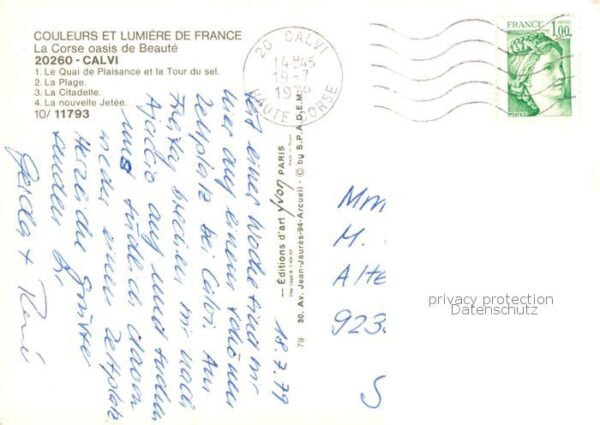 COULEURS ET LUMIÈRE DE FRANCE
La Corse oasis de Beauté
20260 - CALVI
1. Le Quai de Plaisance et la Tour du sel.
2. La Plage.
3. La Citadelle.
4. La nouvelle Jetée.
10/ 11793
20 CALVI
14H45
19-7
1979
HAUTE CORSE
FRANCE
1,00
18.7.79
Seit einer Woche sind wir
hier auf einem schönen
Zeltplatz bei Calvi. Am
Freitag wir nach
Ajaccio auf und suchen
uns südlich davon
wieder einen Zeltplatz
Herzliche Grüsse
senden Dir
Gerda + René
79
30. Av. Jean-Jaurès-94-Arcueil - © by S.P.A.D.E.M.
— Éditions d'art yvon PARIS
Mm
M.
Alte
923
S
privacy protection
Datenschutz